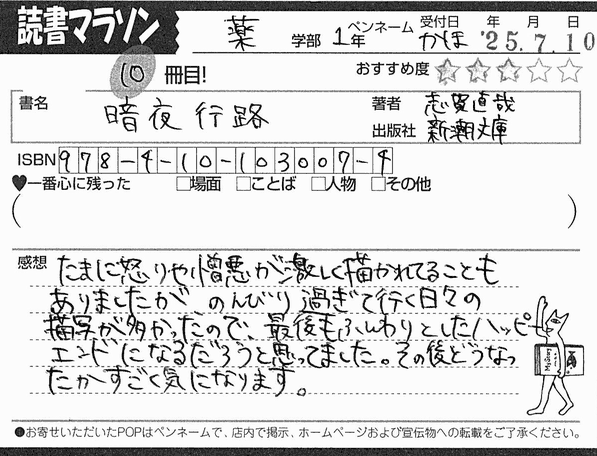 読書マラソン
薬 学部 1年 ペンネーム かほ 受付日 年 月 日 '25.7.10
10 冊目! おすすめ度 ★★★☆☆
書名 暗夜行路 著者 志賀直哉
出版社 新潮文庫
ISBN 978-4-10-103007-4
♥一番心に残った □場面 □ことば □人物 □その他
( )
感想 たまに怒りや憎悪が激しく描かれてることも
ありましたが のんびり過ぎて行く日々の
描写が多かったので、最後もふんわりとしたハッピー
エンドになるだろうと思ってました。その後どうなっ
たかすごく気になります。
●お寄せいただいたPOPはペンネームで、店内で掲示、ホームページおよび宣伝物への転載をご了承ください。